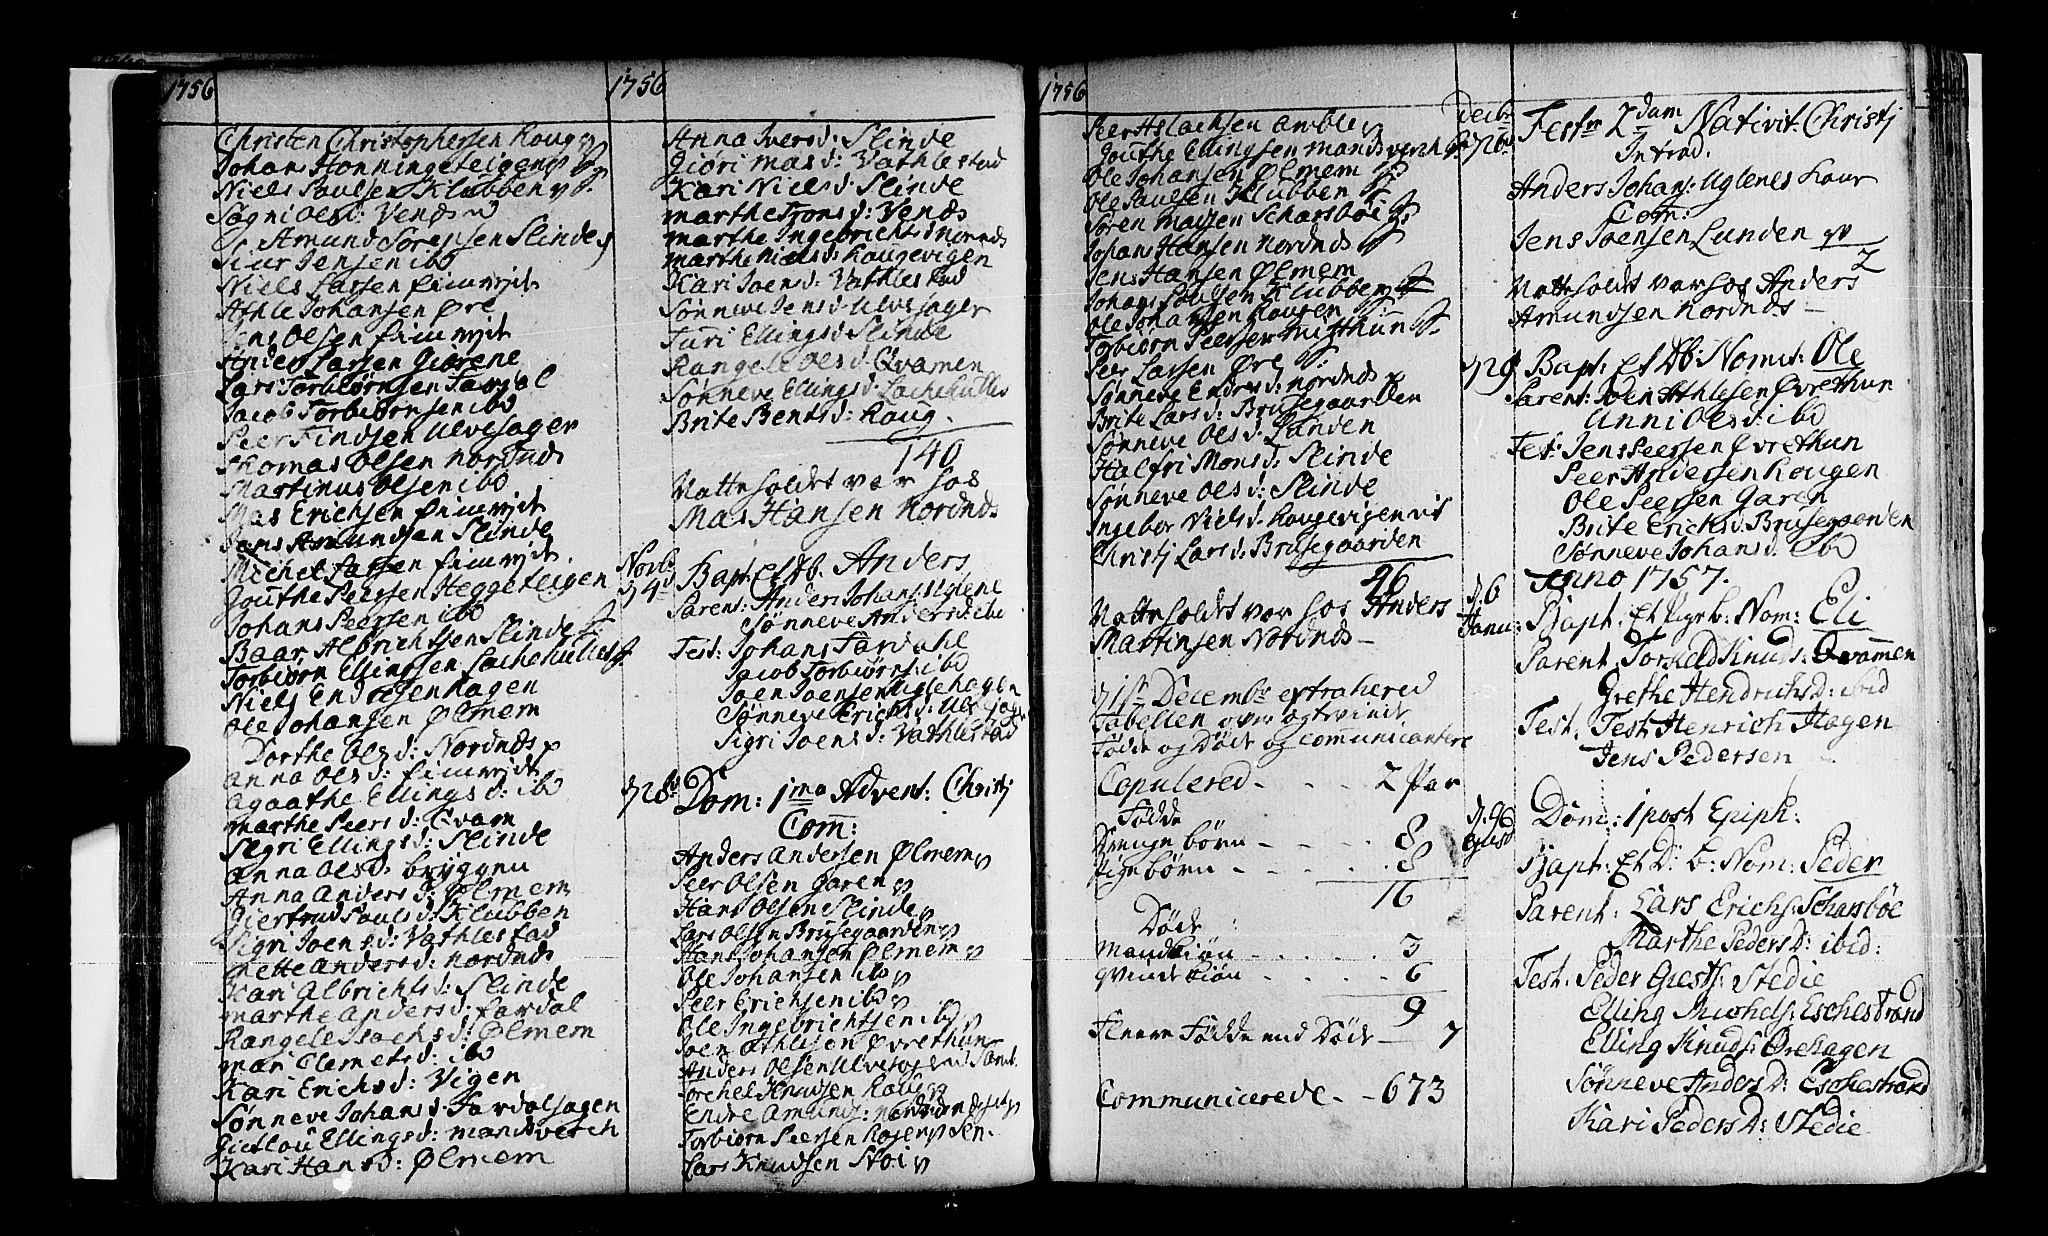 1756
Christen Christophersen Houg
Johans Honningeteigen
Niels Paulsen Klubben
Søgni Oles d: Vends
Amund Sørensen Slinde
Siur Jensen ibd
Niels Lassen fimrejt
Athle Johansen Øre
Jens Olsen fimrejt
Anders Lassen Giørene
Lars Torbiørnsen Fardal
Jacob Torbiørnsen ibd
Peer Findsen Ulvesager
Thomas Olsen Nordnds
Martinus Olsen ibd
Mas Erichsen fimrejt
Jens Amundsen Slinde
Michel Lassen fimrejt
Gouthe Peersen Heggeteigen
Johans Peersen ibd
Baar Albrichtsen Slinde
Torbiørn Ellingsen Lachehulles
Niels Endresen hagen
Ole Johansen Ølmem
Dorthe Oles d: Nordnds
Anna Oles d: fimrejt
Agaathe Ellings d: ibd
Marthe Peers d: Qvam
Segri Ellings d: Slinde
Anna Oles d: bryggen
Anna Anders d: Ølmem
Giertrud Pauls d: Klubben
Sigri Joens d: Vathlestad
Mette Anders d: Nordnds
Kari Albrichts d: Slinde
Marthe Anders d: Fardal
Rangele Isachs d: Ølmem
Mari Clemets d: ibd
Kari Erichs d: Vigen
Sønneve Johans d: Fardalsagen
Giertlou Ellings d: Mandsverch
Kari Hans d: Ølmem
1756
Anna Ivers d: Slinde
Giøri Mas d: Vathlestad
Kari Niels d: Slinde
Marthe Trons d: Vends
Marthe Ingebrichts Nornds
Marthe Niels d: Hougevigen
Kari Joens d: Vathlestad
Sønneve Jens d: Ulvesager
Turi Ellings d: Slinde
Rangele Oles d: Qvamen
Sønneve Ellings d: Lachehulles
Brite Bents d: Houg.
140
Natteholdet var hos
Mas Hansen Nordnds
Novb:
d 4de
Bapt: Et Db. Anders
Parent: Anders Johans: Uglene
Sønneve Anders d: ibd
Test: Johans Fardahl
Jacob Torbiørns: ibd
Joen Joensen Uglehagen
Sønneve Erichs d: Ulvesager
Sigri Joens d: Vathlestad
d 28de
Dom: 1ma Advent: Christj
Com:
Anders Andersen Ølmem
Peer Olsen Garen
Hans Olsen Slinde
Lars Olsen Brusegaarden
Hans Johansen Ølmem
Ole Johansen ibd
Peer Erichsen ibd
Ole Ingebrichtsen ibd
Joen Athlesen Øvrethun
Anders Olsen Ulvesager
Torchel Knudsen
Endre Amunds: Nordnds
Torbiørn Peersen
Lars Knudsen Stoi
1756
Peer Aslachsen Amble
Gouthe Ellingsen Mandsverch
Ole Johansen Ølmem
Ole Paulsen Klubben
Søren Massen Scharsbøe
Johans Hansen Nordnds
Jens Hansen Ølmem
Johans Paulsen Klubben
Ole Johansen Hougen
Torbiørn Peersen
Peer Lassen Øre
Sønneve Endres d: Nordnds
Brite Lars d: Brusegaarden
Sønneve Oles d: Lunden
Halfri Mons d: Slinde
Sønneve Oles d: Slinde
Ingebor Niels d: Hougevigen
Christj Lars d: Brusegaarden
46
Natteholdet var hos Anders
Martinsen Nordnds
d 1ste Decembr extrahered
Tabellen over
Fødde og Døde og Communicantere
Copulered - - - 2 Par
Fødde
Drengebørn - - - 8
Pigebørn - - - 8
16
Døde:
Mandkiøn - - - 3
Qvindekiøn - - - 6
9
Flere Fødde end Døde - 7
Communicerede - - 673
Decbr
d 26de
Festo 2dam Nativit: Christj
Introd.
Anders Johans: Uglenes Kone
Com:
Jens Joensen Lunden
2
Natteholdet var hos Anders
Amundsen Nordnds
d 29
Bapt: Et Db: Nomt: Ole
Parent: Joen Athlesen Øvrethun
Anni Oles d: ibd
Test: Jens Peersen Øvrethun
Peer Andersen Hougen
Ole Peersen Garen
Brite Erichs d: Brusegaarden
Sønneve Johans d: ibd
Anno 1757.
d. 6
Janu:
Bapt. Et Nom: Eli
Parent. Torkild Knuds: Qvamen
Grethe Hendrichs D: ibid
Test. Test Henrich Hagen
Jens Pedersen
d. 9
ejusd
Dom: 1 post Epiph:
Bapt: Et D: b: Nom: Peder
Parent: Lars Erichs: Scharsbøe
Marthe Peders D: ibid:
Test. Peder Giests: Stedie
Elling Michels: Eschestrand
Elling Knuds: Ørehagen
Sønneve Anders D: Eschestrand
Kari Peders D: Stedie